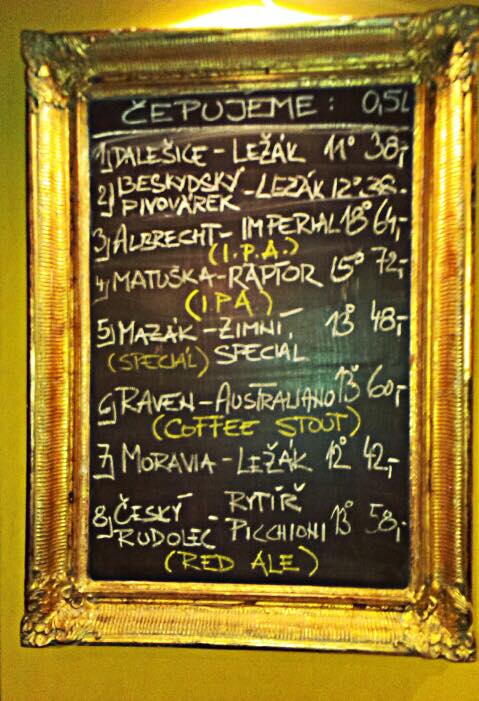 ČEPUJEME: 0,5L
1) DALEŠICE - LEŽÁK 11° 38,-
2) BESKYDSKÝ PIVOVÁREK - LEŽÁK 12° 38.-
3) ALBRECHT - IMPERIAL 18° 64,-
(I.P.A.)
4) MATUŠKA - RAPTOR 15° 72,-
(IPA)
5) MAZÁK - ZIMNÍ 13° 48,-
(SPECIÁL) SPECIAL
6) RAVEN - AUSTRALIANO 13° 60,-
(COFFEE STOUT)
7) MORAVIA - LEŽÁK 12° 42,-
8) ČESKÝ RUDOLEC - RYTÍŘ PICCHIONI 13° 58,-
(RED ALE)